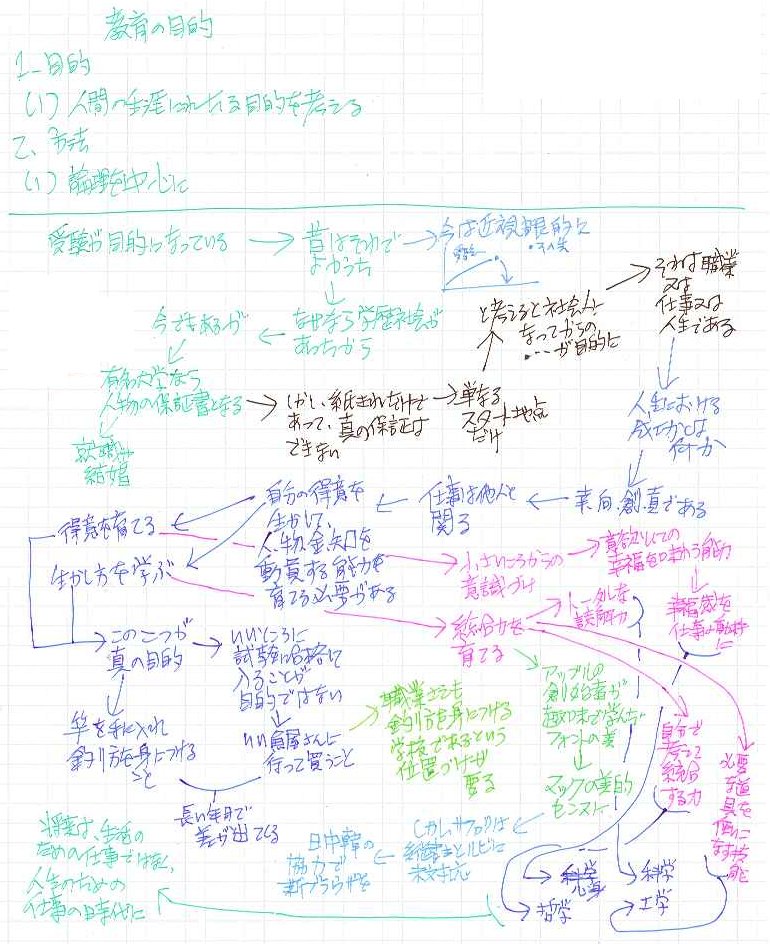 教育の目的
1. 目的
(1) 人間の生涯にわたる目的を考える
2. 方法
(1) 論理を中心に
受験が目的になっている
昔はそれで
よかった
今は近視眼的に
なぜなら学歴社会が
あったから
今でもあるが
有名大学なら
人物の保証書となる
就職や
結婚
しかし、紙きれなだけで
あって、真の保証は
できない
単なる
スタート地点
だけ
と考えると社会人に
なってからの
・・・が目的に
それは職業
又は
仕事又は
人生である
人生における
成功とは
何か
仕事は他人と
関る
自分の得意を
生かして、
人、物、金、知を
動員する能力を
育てる必要がある
得意を育てる
生かし方を学ぶ
この二つが
真の目的
いいところに
試験に合格して
入ることが
目的ではない
竿を手に入れ
釣り方を身につける
こと
いい魚屋さんに
行って買うこと
長い年月で
差が出てくる
職業さえも
釣り方を身につける
学校であるという
位置づけが
要る
小さいころからの
意識づけ
幸福を味わう能力
幸福感を
総合力を
育てる
トータルな
読解力
アップルの
創始者が
フォントの美
マックの美的
センスに
自分で
考えて
統合
する力
必要な道
具を
日中韓の
協力で
新ブラウザを
将来は、生活の
ための仕事ではなく、
人生のための
仕事の時代に
哲学
科学
工学